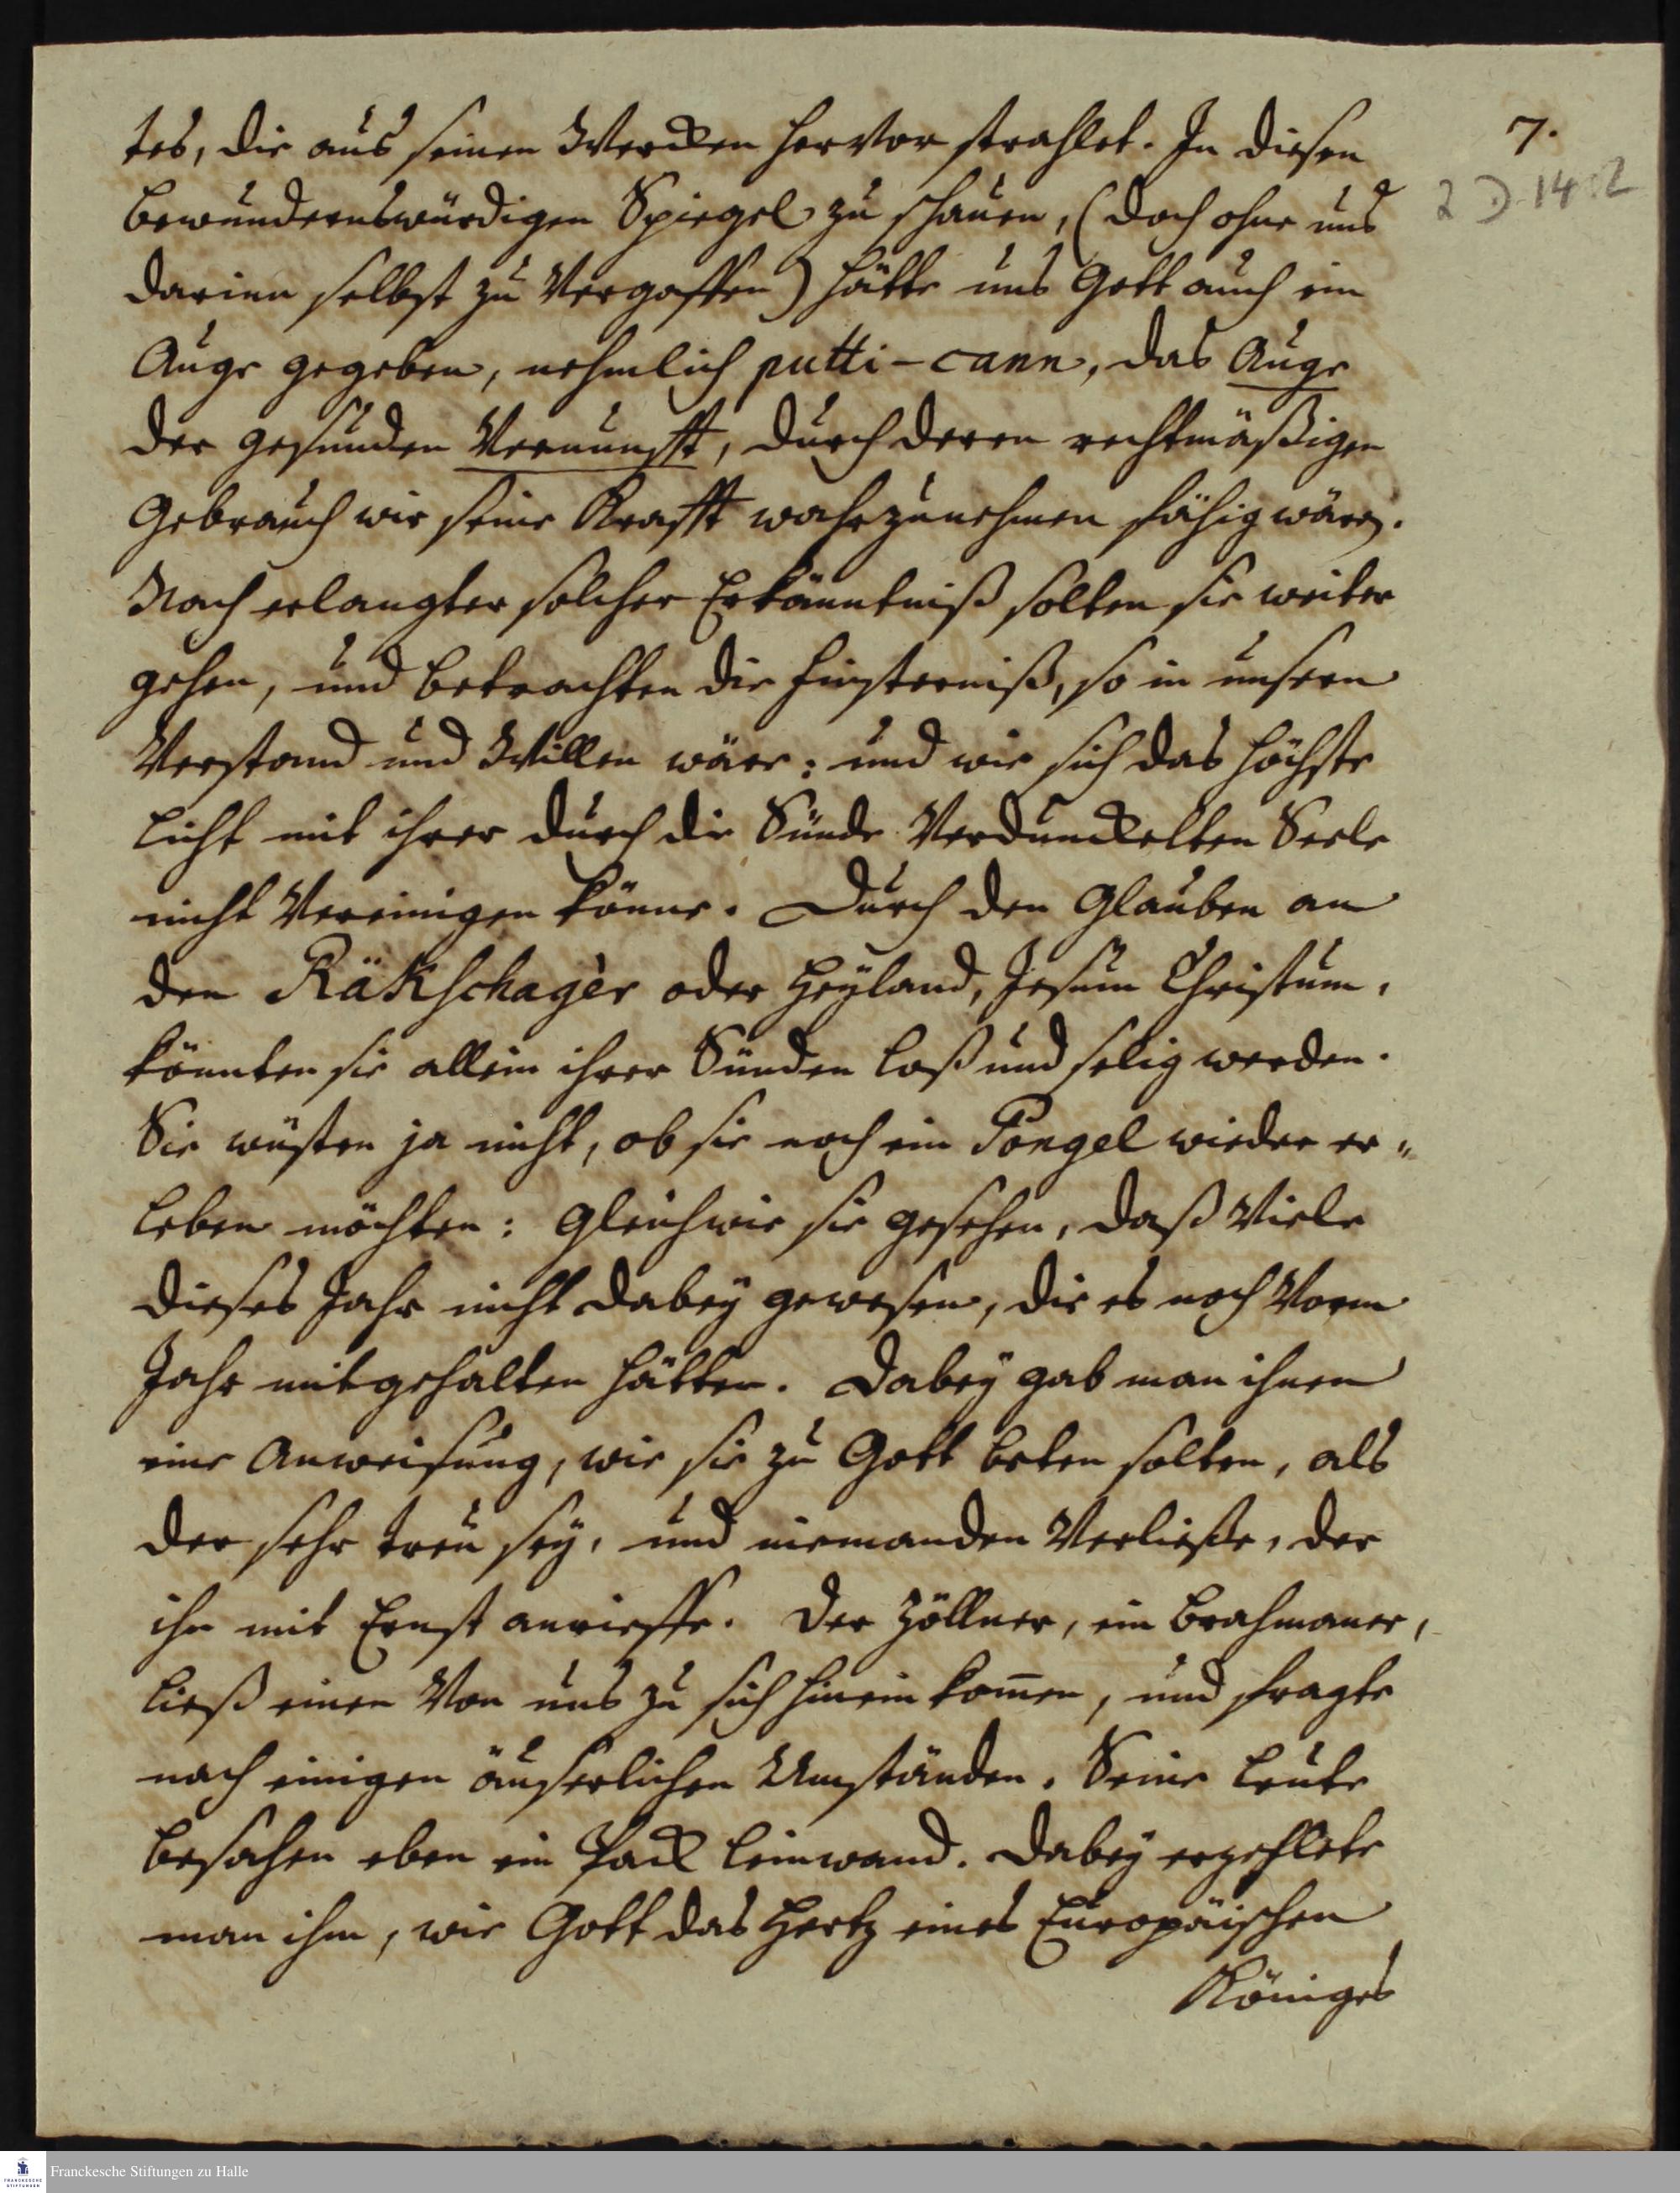 7.
2 D 14 : 2
tes, die aus seinen Wercken hervor strahlet. In diesen
bewundernswürdigen Spiegel zu schauen, (doch ohne uns
darinn selbst zu vergaffen) hätte uns Gott auch ein
Auge gegeben, nehmlich putti-cann, das Auge
der gesunden Vernunfft, durch deren rechtmäßigen
Gebrauch wir seine Krafft wahrzunehmen fähig wären.
Nach erlangter solcher Erkänntniß solten sie weiter
gehen, und betrachten die Finsterniß, so in unsern
Verstand und Willen wäre: und wie sich das höchste
Licht mit ihrer durch die Sünde verdunckelten Seele
nicht vereinigen könne. Durch den Glauben an
den Räkschagèr oder Heyland, Jesum Christum,
könnten sie allein ihrer Sünden loß und selig werden.
Sie wüsten ja nicht, ob sie noch ein Pongel wieder er-
leben möchten: Gleichwie sie gesehen, daß viele
dieses Jahr nicht dabey gewesen, die es noch vorm
Jahr mitgehalten hätten. Dabey gab man ihnen
eine Anweisung, wie sie zu Gott beten solten, als
der sehr treu sey, und niemanden verließe, der
ihn mit Ernst anrieffe. Der Zöllner, ein Brahmaner,
ließ einen von uns zu sich hinein kom̅en, und fragte
nach einigen äuserlichen Umständen. Seine Leute
besahen eben ein Pack Leinwand. Dabey erzehlete
man ihm, wie Gott das Hertz eines Europäischen
Königes
Franckesche Stiftungen zu Halle
FRANCKESCHE
STIFTUNGEN